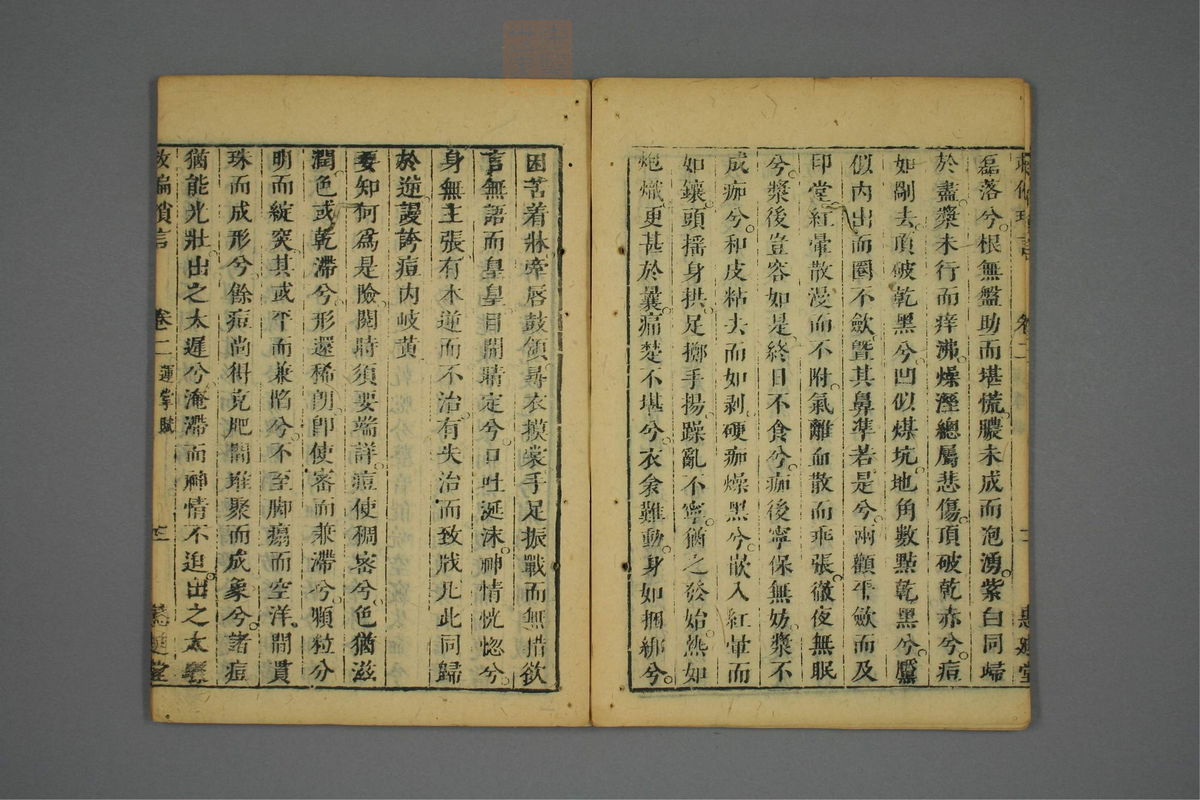 磊落兮。根無盤助而堪慌。膿未成而泡湧。紫白同歸
於盡。漿未行而痒沸。燥溼總屬悲傷。頂破乾赤兮。痘
如剮去。頂破乾黑兮。凹似煤坑。地角數點乾黑兮。靨
似內出而圈不斂。暨其鼻準若是兮。兩顴平斂而及
印堂。紅暈散漫而不附。氣離血散而乖張。徹夜無眠
兮。漿後豈容如是。終日不食兮。痂後寧保無妨。漿不
成痂兮。和皮粘去而如剥。硬痂燥黑兮。嵌入紅暈而
如鑲。頭搖身拱。足擲手揚。躁亂不寧。猶之發始熱如
炮熾。更甚於曩。痛楚不堪兮。衣衾難動。身如捆綁兮。
困苦着牀。牽唇鼓頷。尋衣摸牀。手足振戰而無措。欲
言無語而皇皇。目開睛定兮。口吐涎沫。神情恍惚兮。
身無主張。有本逆而不治。有失治而致戕。凡此同歸
於逆。謾誇痘內岐黃
要知何爲是險。閱時須要端詳。痘使稠密兮。色猶滋
潤。色或乾滯兮。形還稀朗。卽使密而兼滯兮。顆粒分
明而綻突。其或平而兼陷兮。不至脚塌而空洋。間貫
珠而成形兮。餘痘尚得克肥。間堆聚而成象兮。諸痘
猶能光壯。出之太遲兮。淹滯而神情不迫。出之太驟
救偏瑣言 卷二 運掌賦 慧迪堂